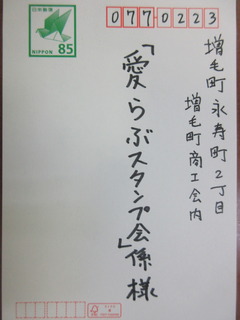 日本郵便
85
NIPPON
0770223
増毛町永寿町2丁目
増毛町商工会内
「愛らぶスタンプ会」係様